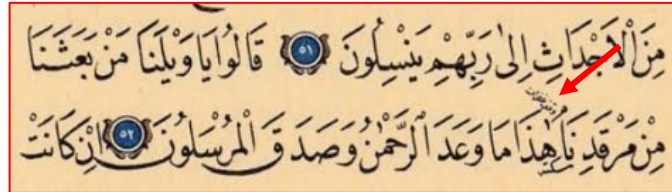 مِنَ الْاَجْدَاثِ اِلٰى رَبِّهِمْ يَنْسِلُونَ ٥١ قَالُوا يَا وَيْلَنَا مَنْ بَعَثَنَا
مِنْ مَرْقَدِنَا هٰذَا مَا وَعَدَ الرَّحْمٰنُ وَصَدَقَ الْمُرْسَلُونَ ٥٢ اِنْ كَانَتْ